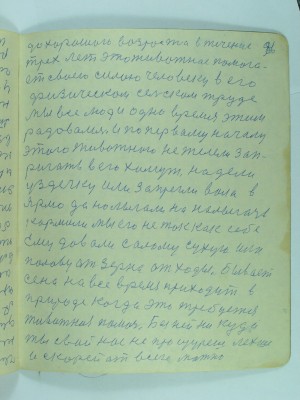 до хорошого возроста в течение 91
трех лет это животное помога-
ет своею силою человеку в его
физическом сельском труде
мы все люди одно время этим
радовались и по первому началу
этого животного не желем зап-
ригать в его хомут, надели
уздечку или запрегли вола в
ярмо да налыгали на налыгаче
кормили мы его не так как себе
ему довали салому сухую или
полову от зерна отходы, Бывает
сена на все время приходит в
природе когда это требуется
животное помоч, Бы ней ни куда
ты свой нос не просунеш лехко
и скорей от всего можно